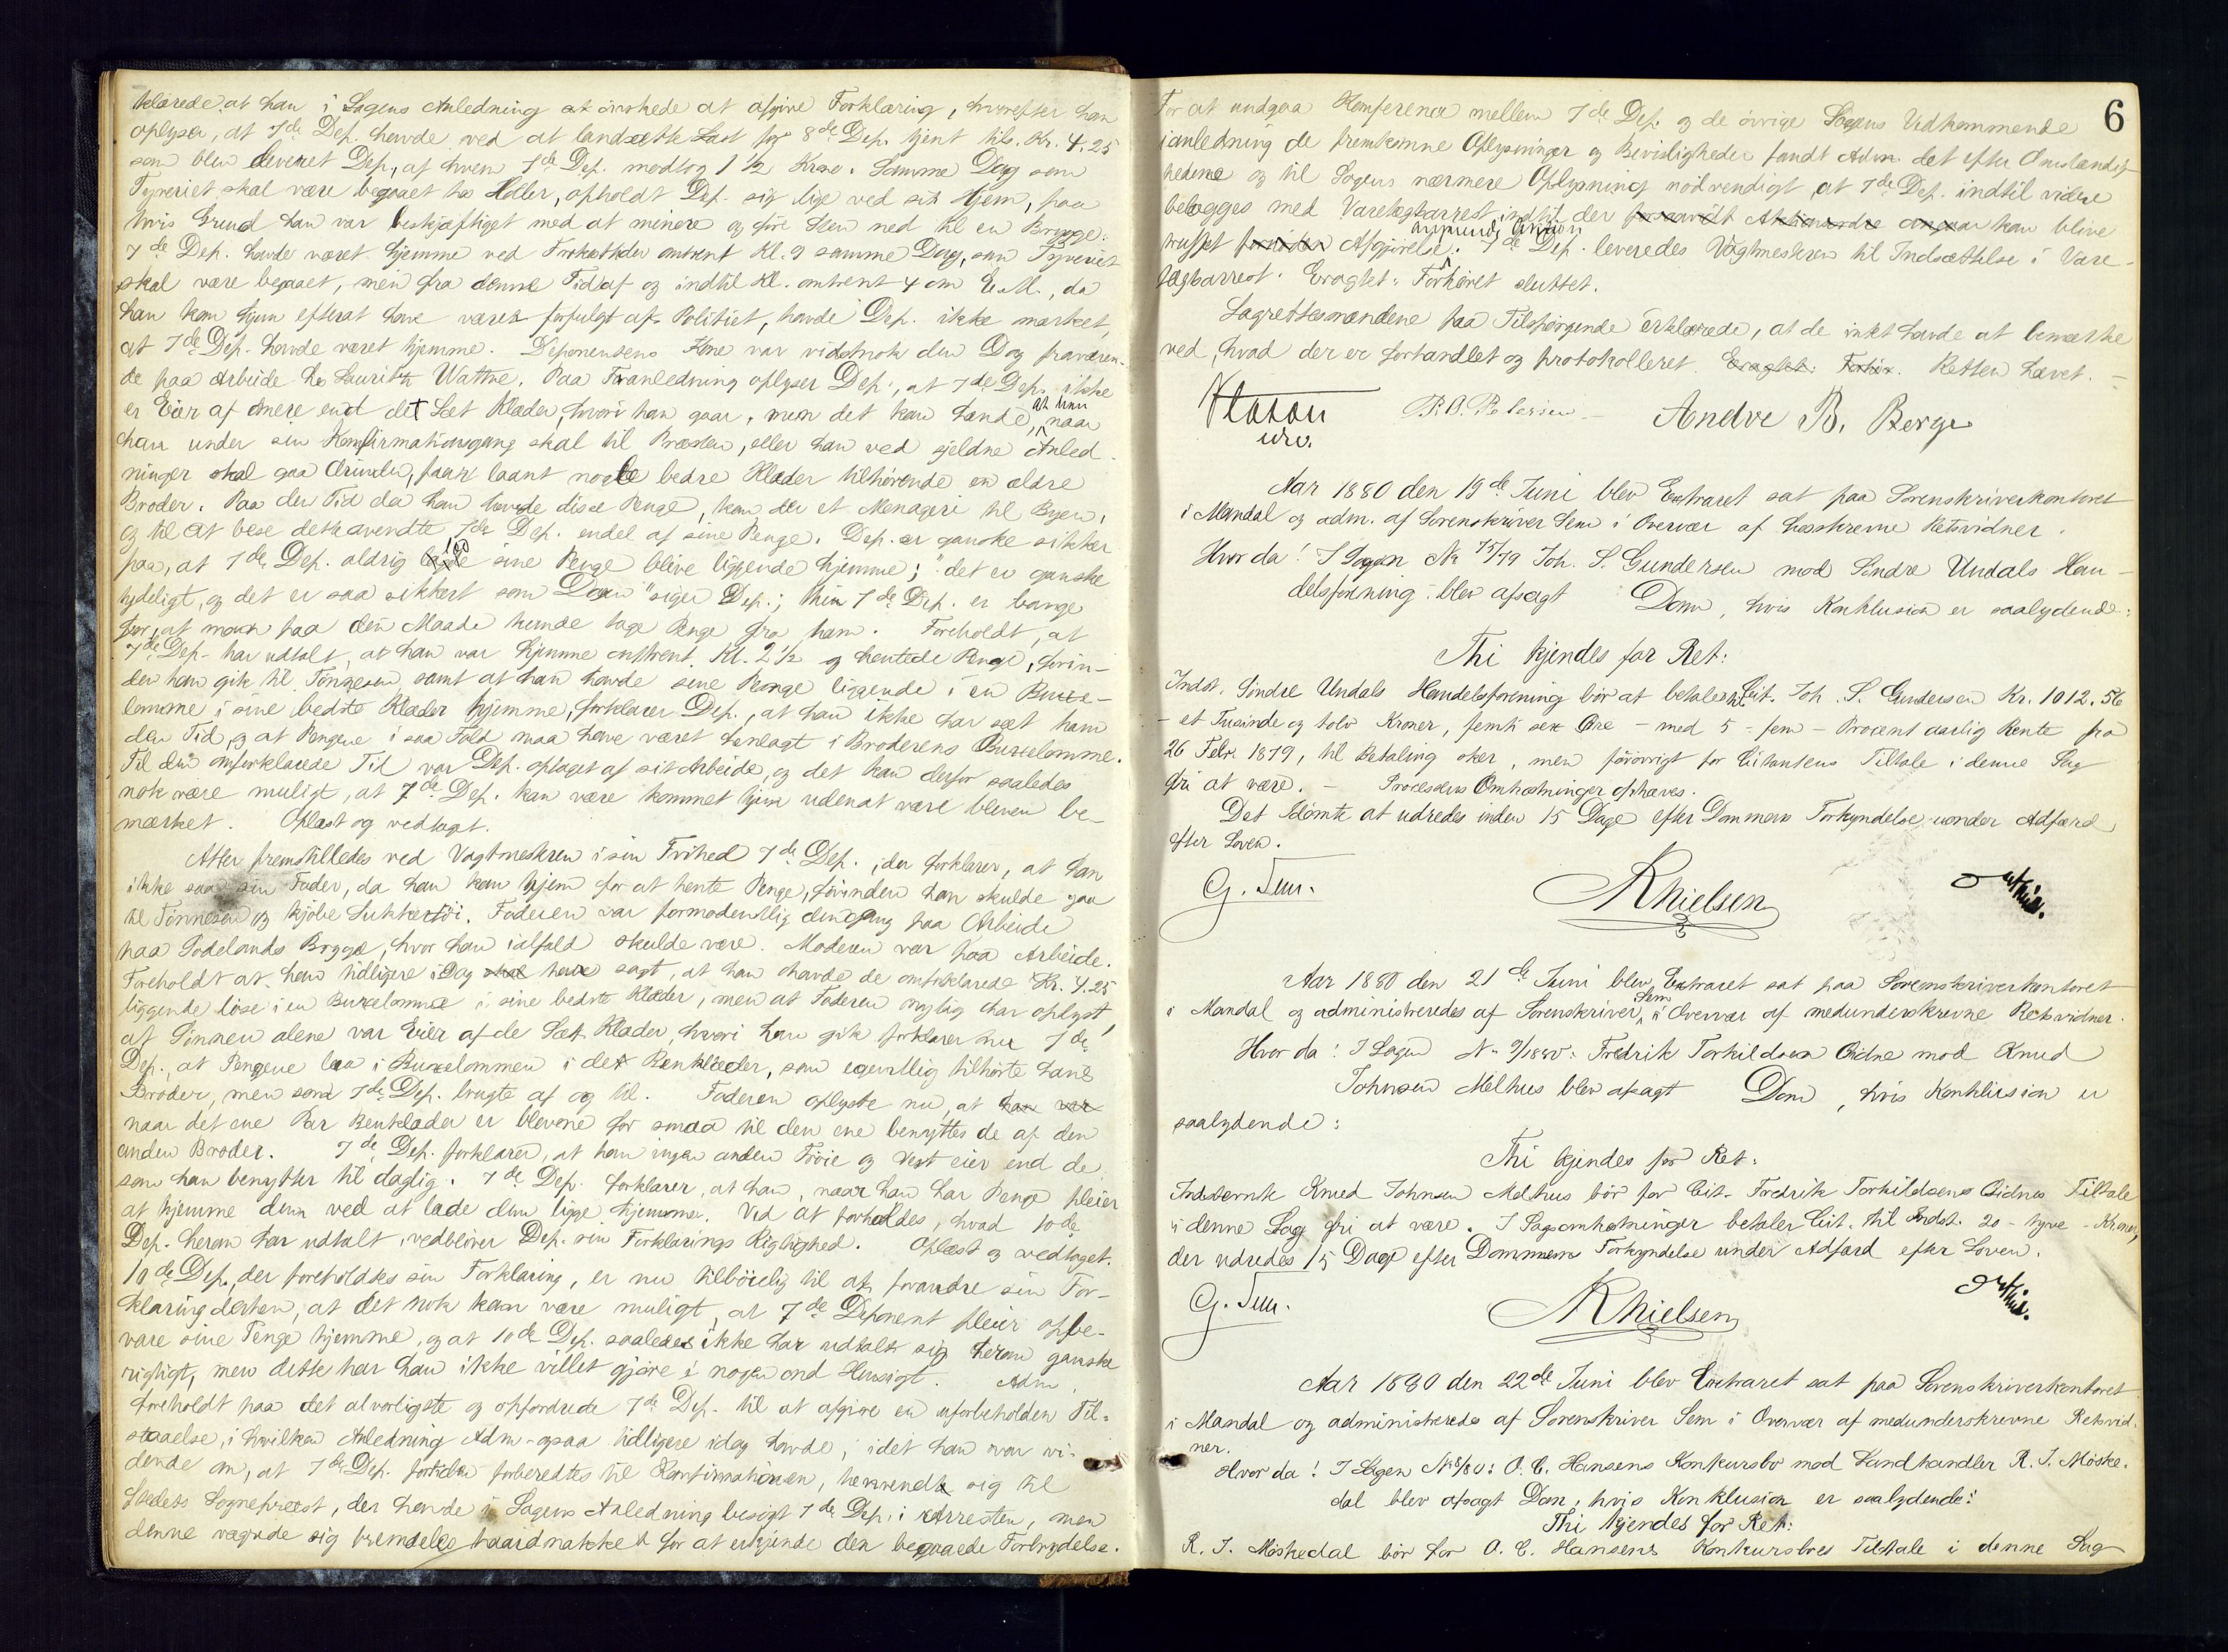 klarede at han i Sagens Anledning at ønskede at afgive Forklaring, hvorefter han
oplyser, at 7de Dep. havde ved at landsætte Last for 8de Dep. tjent tils. Kr. 4.25
som blev leveret Dep., af hvem 7de Dep. modtog 1 1/2 Krone. Samme Dag som
Tyveriet skal være begaaet hos Holler, opholdt Dep. sig lige ved sit Hjem, paa
hvis Grund han var beskjæftiget med at minere og føre Sten ned til en Brygge.
7de Dep. havde været hjemme ved Frokosttider omtrent Kl. 9 samme Dag, som Tyveriet
skal være begaaet, men fra denne Tid af og indtil Kl. omtrent 4 om E.M., da
han kom hjem efterat have været forfulgt af Politiet, havde Dep. ikke mærket,
at 7de Dep. havde været hjemme. Deponentens Kone var vidstnok den Dag fraværen-
de paa Arbeide hos Lauritz Wattne. Paa Foranledning oplyser Dep., at 7de Dep. ikke
er Eier af mere end det Sæt Klæder, hvori han gaar, men det kan hænde, at han naar
han under sin Konfirmationsgang skal til Præsten, eller han ved sjeldne Anled-
ninger skal gaa Ærinder, faar laant nogle bedre Klæder tilhørende en ældre
Broder. Paa den Tid da han havde disse Penge, kom der et Menageri til Byen,
og til at bese dette anvendte 7de Dep. endel af sine Penge. Dep. er ganske sikker
paa, at 7de Dep. aldrig lod sine Penge blive liggende hjemme; "det er ganske
tydeligt, og det er saa sikkert som Dagen" siger Dep.; thi 7de Dep. er bange
for, at man paa den Maade kunde tage Penge fra ham. Foreholdt, at
7de Dep. har udtalt, at han var hjemme omtrent Kl. 2 1/2 og hentede Penge, forin-
den han gik til Tønnesen samt at han havde sine Penge liggende i en Buxe-
lomme i sine bedste Klæder hjemme, forklarer Dep., at han ikke har set ham
den Tid, og at Pengene i saa Fald maa have været henlagt i Broderens Buxelomme.
Til den omforklarede Tid var Dep. optaget af sit Arbeide, og det kan derfor saaledes
nok være muligt, at 7de Dep. kan være kommet hjem udenat være bleven be-
mærket. Oplæst og vedtaget.
Atter fremstilledes ved Vagtmesteren i sin Frihed 7de Dep., der forklarer, at han
ikke saa sin Fader, da han kom hjem for at hente Penge, førinden han skulde gaa
til Tønnesen og kjøbe Sukkertøi. Faderen var formodentlig dengang paa Arbeide
paa Sodelands Brygge, hvor han ialfald skulde være. Moderen var paa Arbeide.
Foreholdt at han tidligere idag skal have sagt, at han havde de omforklarede Kr. 4.25
liggende løse i en Buxelomme i sine bedste Klæder, men at Faderen nylig har oplyst,
at Sønnen alene var Eier af de Sæt Klæder, hvori han gik forklarer nu 7de
Dep., at Pengene laa i Buxelommen i det Benklæder, som egentlig tilhørte hans
Broder, men som 7de Dep. brugte af og til. Faderen oplyste nu, at han var
naar det ene Par Benklæder er blevene for smaa til den ene benyttes de af den
anden Broder. 7de Dep. forklarer, at han ingen anden Trøie og Vest eier end de
som han benytter til daglig. 7de Dep. forklarer, at han, naar han har Penge pleier
at hjemme dem ved at lade dem ligge hjemme. Ved at forholdes, hvad 10de
Dep. herom har udtalt, vedbliver Dep. sin Forklarings Rigtighed. Oplæst og vedtaget.
10de Dep., der foreholdtes sin Forklaring, er nu tilbøielig til at forandre sin For-
klaring derhen, at det nok kan være muligt, at 7de Deponent pleier opbe-
vare sine Penge hjemme, og at 10de Dep. saaledes ikke har udtalt sig herom ganske
rigtigt, men dette har han ikke villet gjøre i nogen ond Hensigt. Adm.
foreholdt paa det alvorligste og opfordrede 7de Dep. til at afgive en uforbeholden Til-
staaelse, i hvilken Anledning Adm. ogsaa tidligere idag havde, idet han var vi-
dende om, at 7de Dep. fortiden forberedtes til Konfirmationen, henvendt sig til
Stedets Sognepræst, der havde i Sagens Anledning besøgt 7de Dep. i Arresten, men
denne vægrede sig fremdeles haardnakket for at erkjende den begaaede Forbrydelse.
6
For at undgaa Konference mellem 7de Dep. og de øvrige Sagens Vedkommende
ianledning de fremkomne Oplysninger og Bevisligheder fandt Adm. det efter Omstændig-
hederne og til Sagens nærmere Oplysning nødvendigt, at 7de Dep. indtil videre
belægges med Varetægtarrest indtil der kan blive
truffet Afgjørelse angaaende Aktion. 7de Dep. leveredes Vagtmesteren til Indsættelse i Vare-
tægtsarrest. Eragtet: Forhøret sluttet.
Lagrettesmændene paa Tilspørgende erklærede, at de intet havde at bemærke
ved, hvad der er forhandlet og protokolleret. Eragtet: Forhør. Retten hævet. –
P. O. Pedersen Andre B. Berge
Aar 1880 den 19de Juni blev Extraret sat paa Sorenskriverkontoret
i Mandal og adm. af Sorenskriver Sem i Overvær af Læsskrevne Retsvidner.
Hvor da! I Sagen No 75/79 Joh. S. Gundersen mod Søndre Undals Han-
delsforening blev afsagt Dom, hvis Konklusion er saalydende:
Thi kjendes for Ret:
Indst. Søndre Undals Handelsforening bør at betale til Cit. Joh. S. Gundersen Kr. 1012.56
– et Tusinde og tolv Kroner, femti sex Øre – med 5 – fem – Procent aarlig Rente fra
26 Febr. 1879, til Betaling sker, men forøvrigt for Citantens Tiltale i denne Sag
fri at være. – Processens Omkostninger ophæves.
Det Idømte at udredes inden 15 Dage efter Dommens Forkyndelse under Adfærd
efter Loven.
G. Sem. K Nielsen
Aar 1880 den 21de Juni blev Extraret sat paa Sorenskriverkontoret
i Mandal og administreredes af Sorenskriver Sem i Overvær af medunderskrevne Retsvidner.
Hvor da! I Sagen No 9/1880: Fredrik Torkildsen Eidne mod Knud
Johnsen Melhus blev afsagt Dom, hvis Konklusion er
saalydende:
Thi kjendes for Ret:
Indstevnte Knud Johnsen Melhus bør for Cit. Fredrik Torkildsens Eidnes Tiltale
i denne Sag fri at være. I Sagsomkostninger betaler Cit. til Indst. 20 – tyve – Kroner,
der udredes 15 Dage efter Dommens Forkyndelse under Adfærd efter Loven.
G. Sem. K Nielsen
Aar 1880 den 22de Juni blev Extraret sat paa Sorenskriverkontoret
i Mandal og administreredes af Sorenskriver Sem i Overvær af medunderskrevne Retsvid-
ner.
Hvor da! I Sagen No 8/80: O. C. Hansens Konkursbo mod Landhandler R. J. Møske-
dal blev afsagt Dom, hvis Konklusion er saalydende:
Thi kjendes for Ret:
R. J. Møskedal bør for O. C. Hansens Konkursboes Tiltale i denne Sag